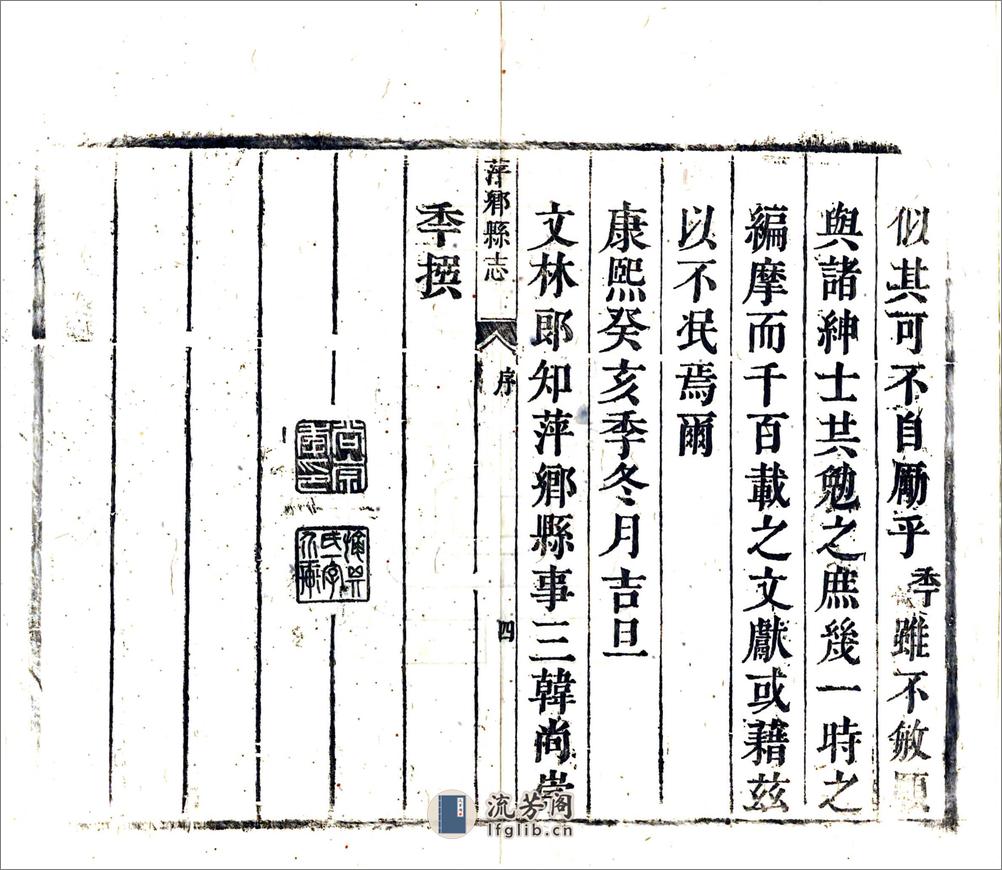 似其可不自勵乎秊雖不敏願
與諸紳士共勉之庶幾一時之
編摩而千百載之文獻或藉茲
以不泯焉爾
康熙癸亥季冬月吉旦
文林郎知萍鄉縣事三韓尚崇
萍鄉縣志
序
四
秊撰
流芳阁
lfglib.cn